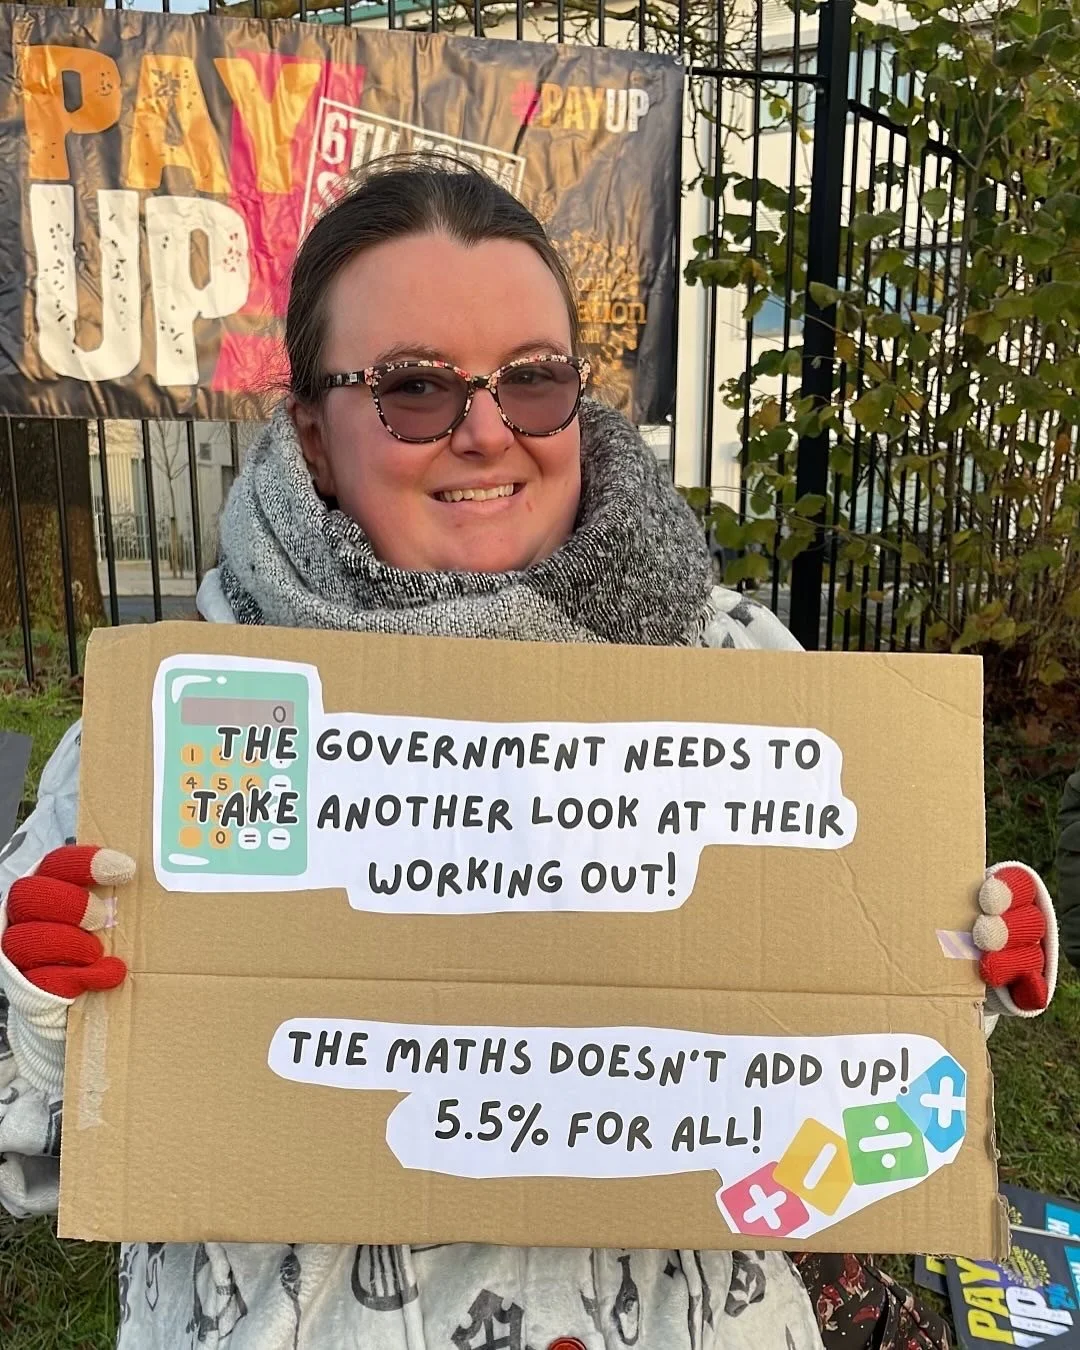 PAY
UP
#PAYUP
6TH FORM
THE GOVERNMENT NEEDS TO
TAKE ANOTHER LOOK AT THEIR
WORKING OUT!
THE MATHS DOESN'T ADD UP!
5.5% FOR ALL!
PAY
UP